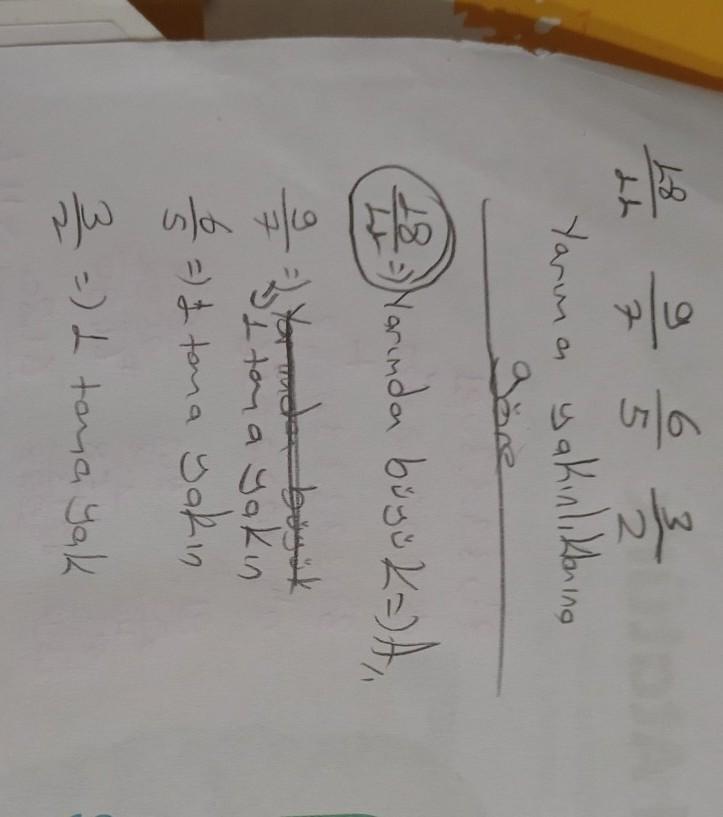 18/11 9/7 6/5 3/2
Yarıma yakınlıklarına
göre
18/11 => Yarımda büyük => A//
9/7 => Yarımdan büyük
=> 1 tama yakın
6/5 => 1 tama yakın
3/2 => 1 tama yak